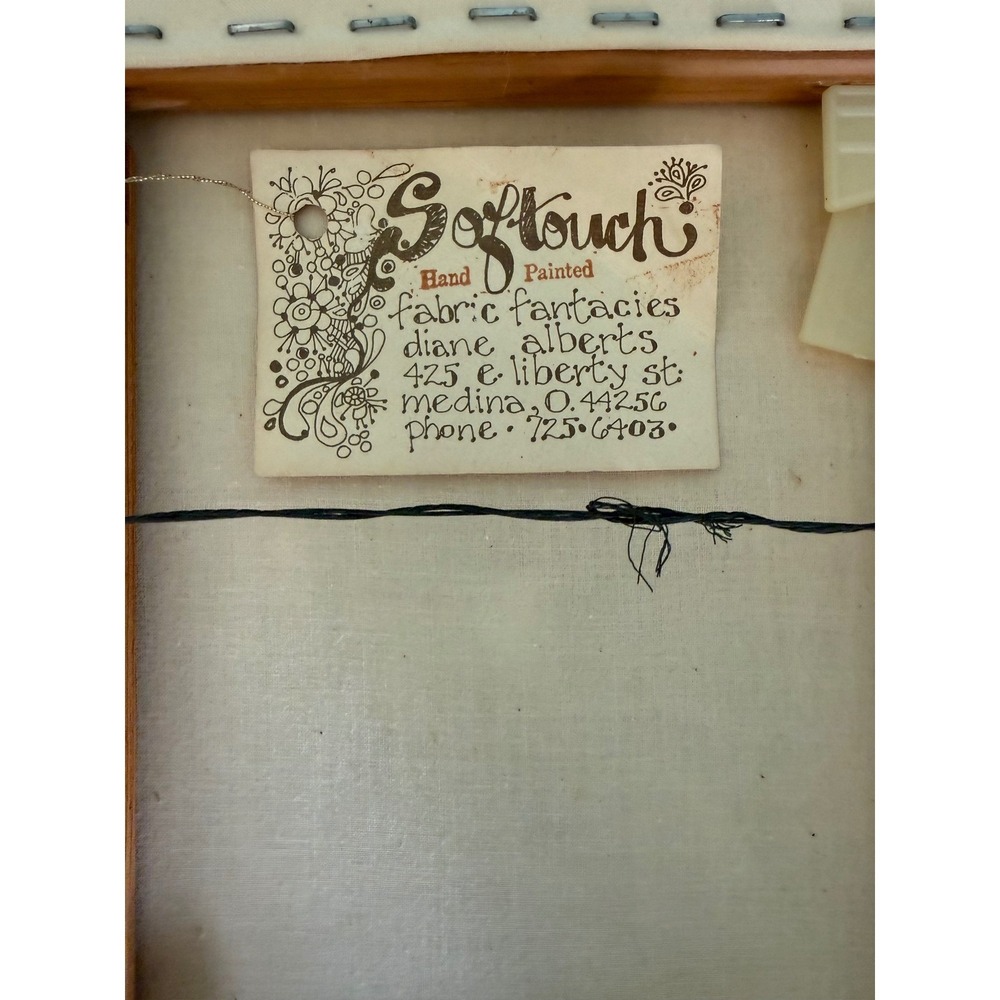 Softouch
Hand Painted
fabric fantacies
diane alberts
425 e. liberty st.
medina, O. 44256
phone • 725•6403•